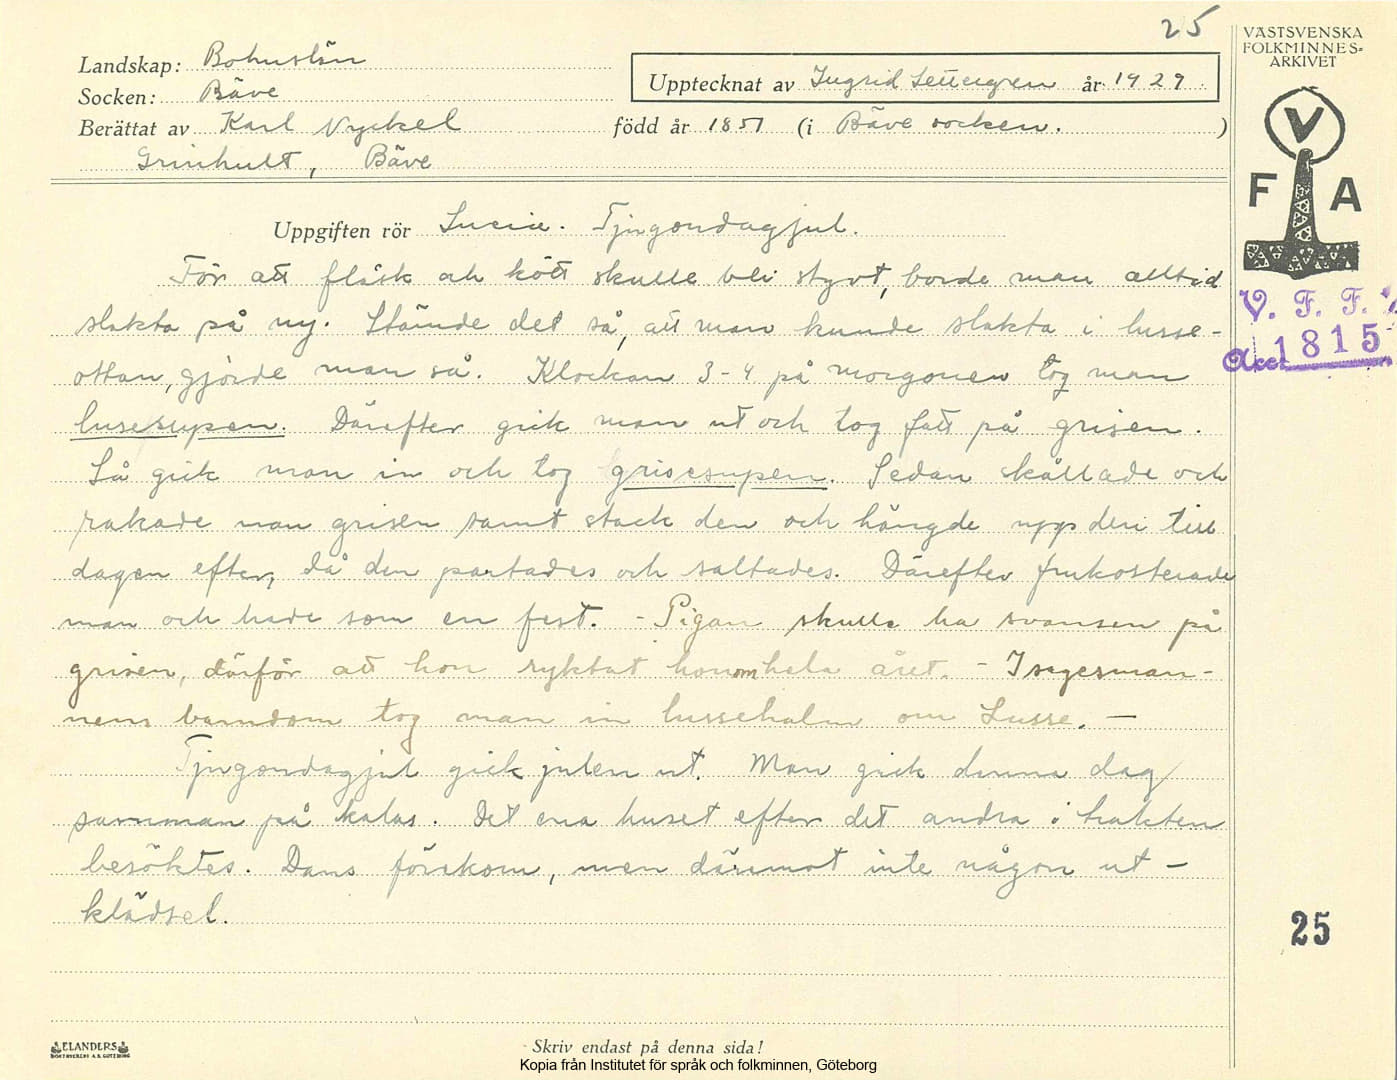 25
VÄSTSVENSKA
FOLKMINNES-
ARKIVET
Landskap: Bohuslän
Socken: Bäve
Upptecknat av Ingrid Settergren år 1929
Berättat av Karl Nyckel född år 1851 (i Bäve socken. )
Grinhult, Bäve
V
F A
Uppgiften rör Lucia. Tjugondagjul.
För att fläsk och kött skulle bli styvt, borde man alltid
slakta på ny. Stämde det så, att man kunde slakta i lusse-
ottan, gjorde man så. Klockan 3-4 på morgonen tog man
lusesupen. Därefter gick man ut och tog fatt på grisen.
Så gick man in och tog grisesupen. Sedan skållade och
rakade man grisen samt stack den och hängde upp den till
dagen efter, då den partades och saltades. Därefter frukosterade
man och hade som en fest. - Pigan skulle ha svansen på
grisen, därför att hon ryktat honom hela året. - I sagesman-
nens barndom tog man in lussehalm om Lusse. -
Tjugondagjul gick julen ut. Man gick denna dag
samman på kalas. Det ena huset efter det andra i trakten
besöktes. Dans förekom, men däremot inte någon ut-
klädsel.
V. F. F.
Acc. 1815
25
ELANDERS
BOKTRYCKERI A.B. GÖTEBORG
Skriv endast på denna sida!
Kopia från Institutet för språk och folkminnen, Göteborg